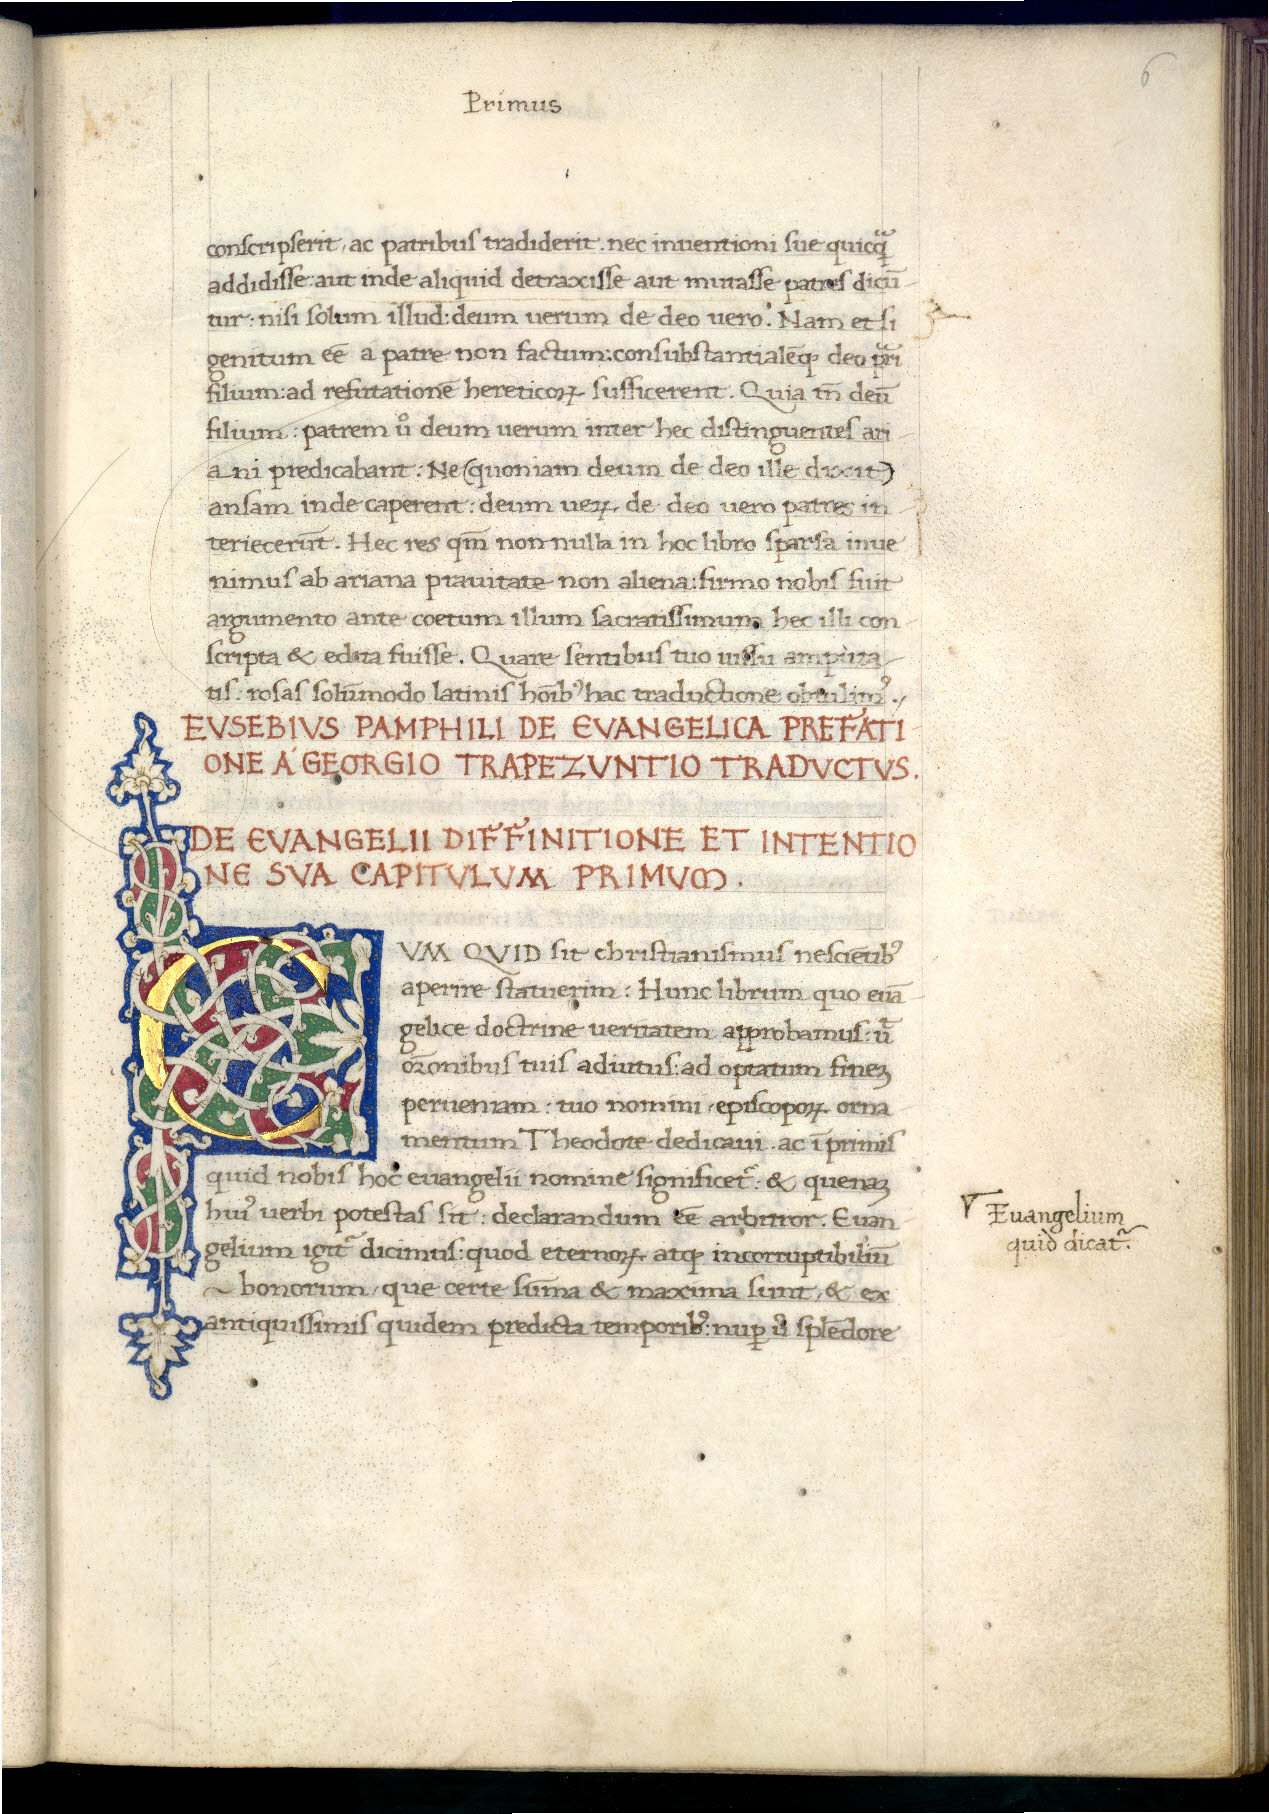 Primus
6
conscripserit, ac patribus tradiderit. nec inuentioni sue quicq̃
addidisse: aut inde aliquid detraxisse aut mutasse patres dicũ
tur: nisi solum illud: deum uerum de deo uero. Nam et si
genitum eẽ a patre non factum: consubstantialẽq; deo pr̃i
filium: ad refutationẽ hereticoꝝ sufficerent. Quia tñ deũ
filium: patrem ů deum uerum inter hec distinguentes ari
ani predicabant: Ne (quoniam deum de deo ille dixit)
ansam inde caperent: deum ueꝝ de deo uero patres in
teriecerũt. Hec res qm̃ non nulla in hoc libro sparsa inue
nimus ab ariana prauitate non aliena: firmo nobis fuit
argumento ante coetum illum sacratissimum hec illi con
scripta & edita fuisse. Quare sentibus tuo iussu amputa
tis: rosas solũmodo latinis hoĩbꝰ hac traductione obtulimꝰ.
EVSEBIVS PAMPHILI DE EVANGELICA PREFATI
ONE A GEORGIO TRAPEZVNTIO TRADVCTVS.
DE EVANGELII DIFFINITIONE ET INTENTIO
NE SVA CAPITVLVM PRIMVM.
CVM QVID sit christianismus nesciẽtibꝰ
aperire statuerim: Hunc librum quo euã
gelice doctrine ueritatem approbamus: ut̃
or̃onibus tuis adiutus: ad optatum fineʒ
perueniam: tuo nomini, episcopoꝝ orna
mentum Theodote dedicaui. ac ĩ primis
quid nobis hoc euangelii nomine significet̃: & quenaʒ
huiꝰ uerbi potestas sit: declarandum eẽ arbitror. Euan
gelium igit̃ dicimus: quod eternoꝝ atq; incorruptibiliũ
bonorum, que certe sũma & maxima sunt, & ex
antiquissimis quidem predicta temporibꝰ: nuꝑ ů splẽdore
Euangelium
quid dicat̃.